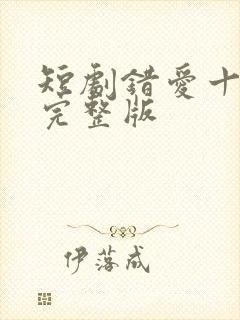 短劇錯愛十
完整版
伊落成